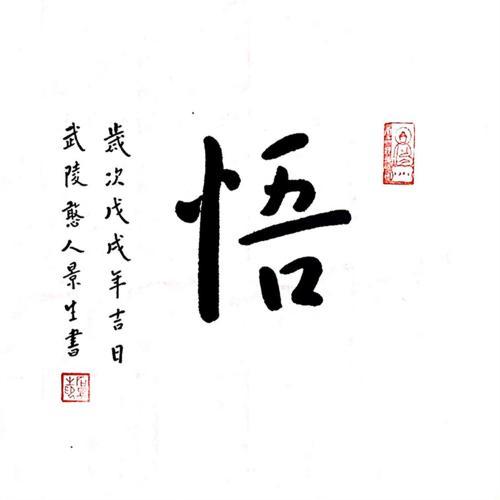 悟
歲次戊戌年吉日
武陵憨人景生書